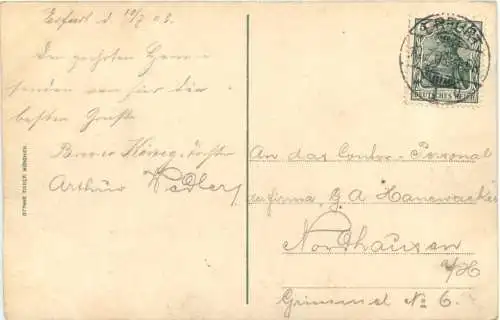 Erfurt d. 10/7 08.
Den geehrten Herren
senden von hier die
besten Grüße
Bruno König
Arthur
OTTMAR ZIEHER, MÜNCHEN.
ERFURT
DEUTSCHES REICH
An das Contor-Personal
der Firma G. A. Hanewacker
Nordhausen
a/H
Grimmel No 6.